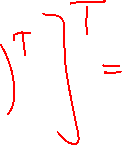 )ᵀ ]ᵀ =